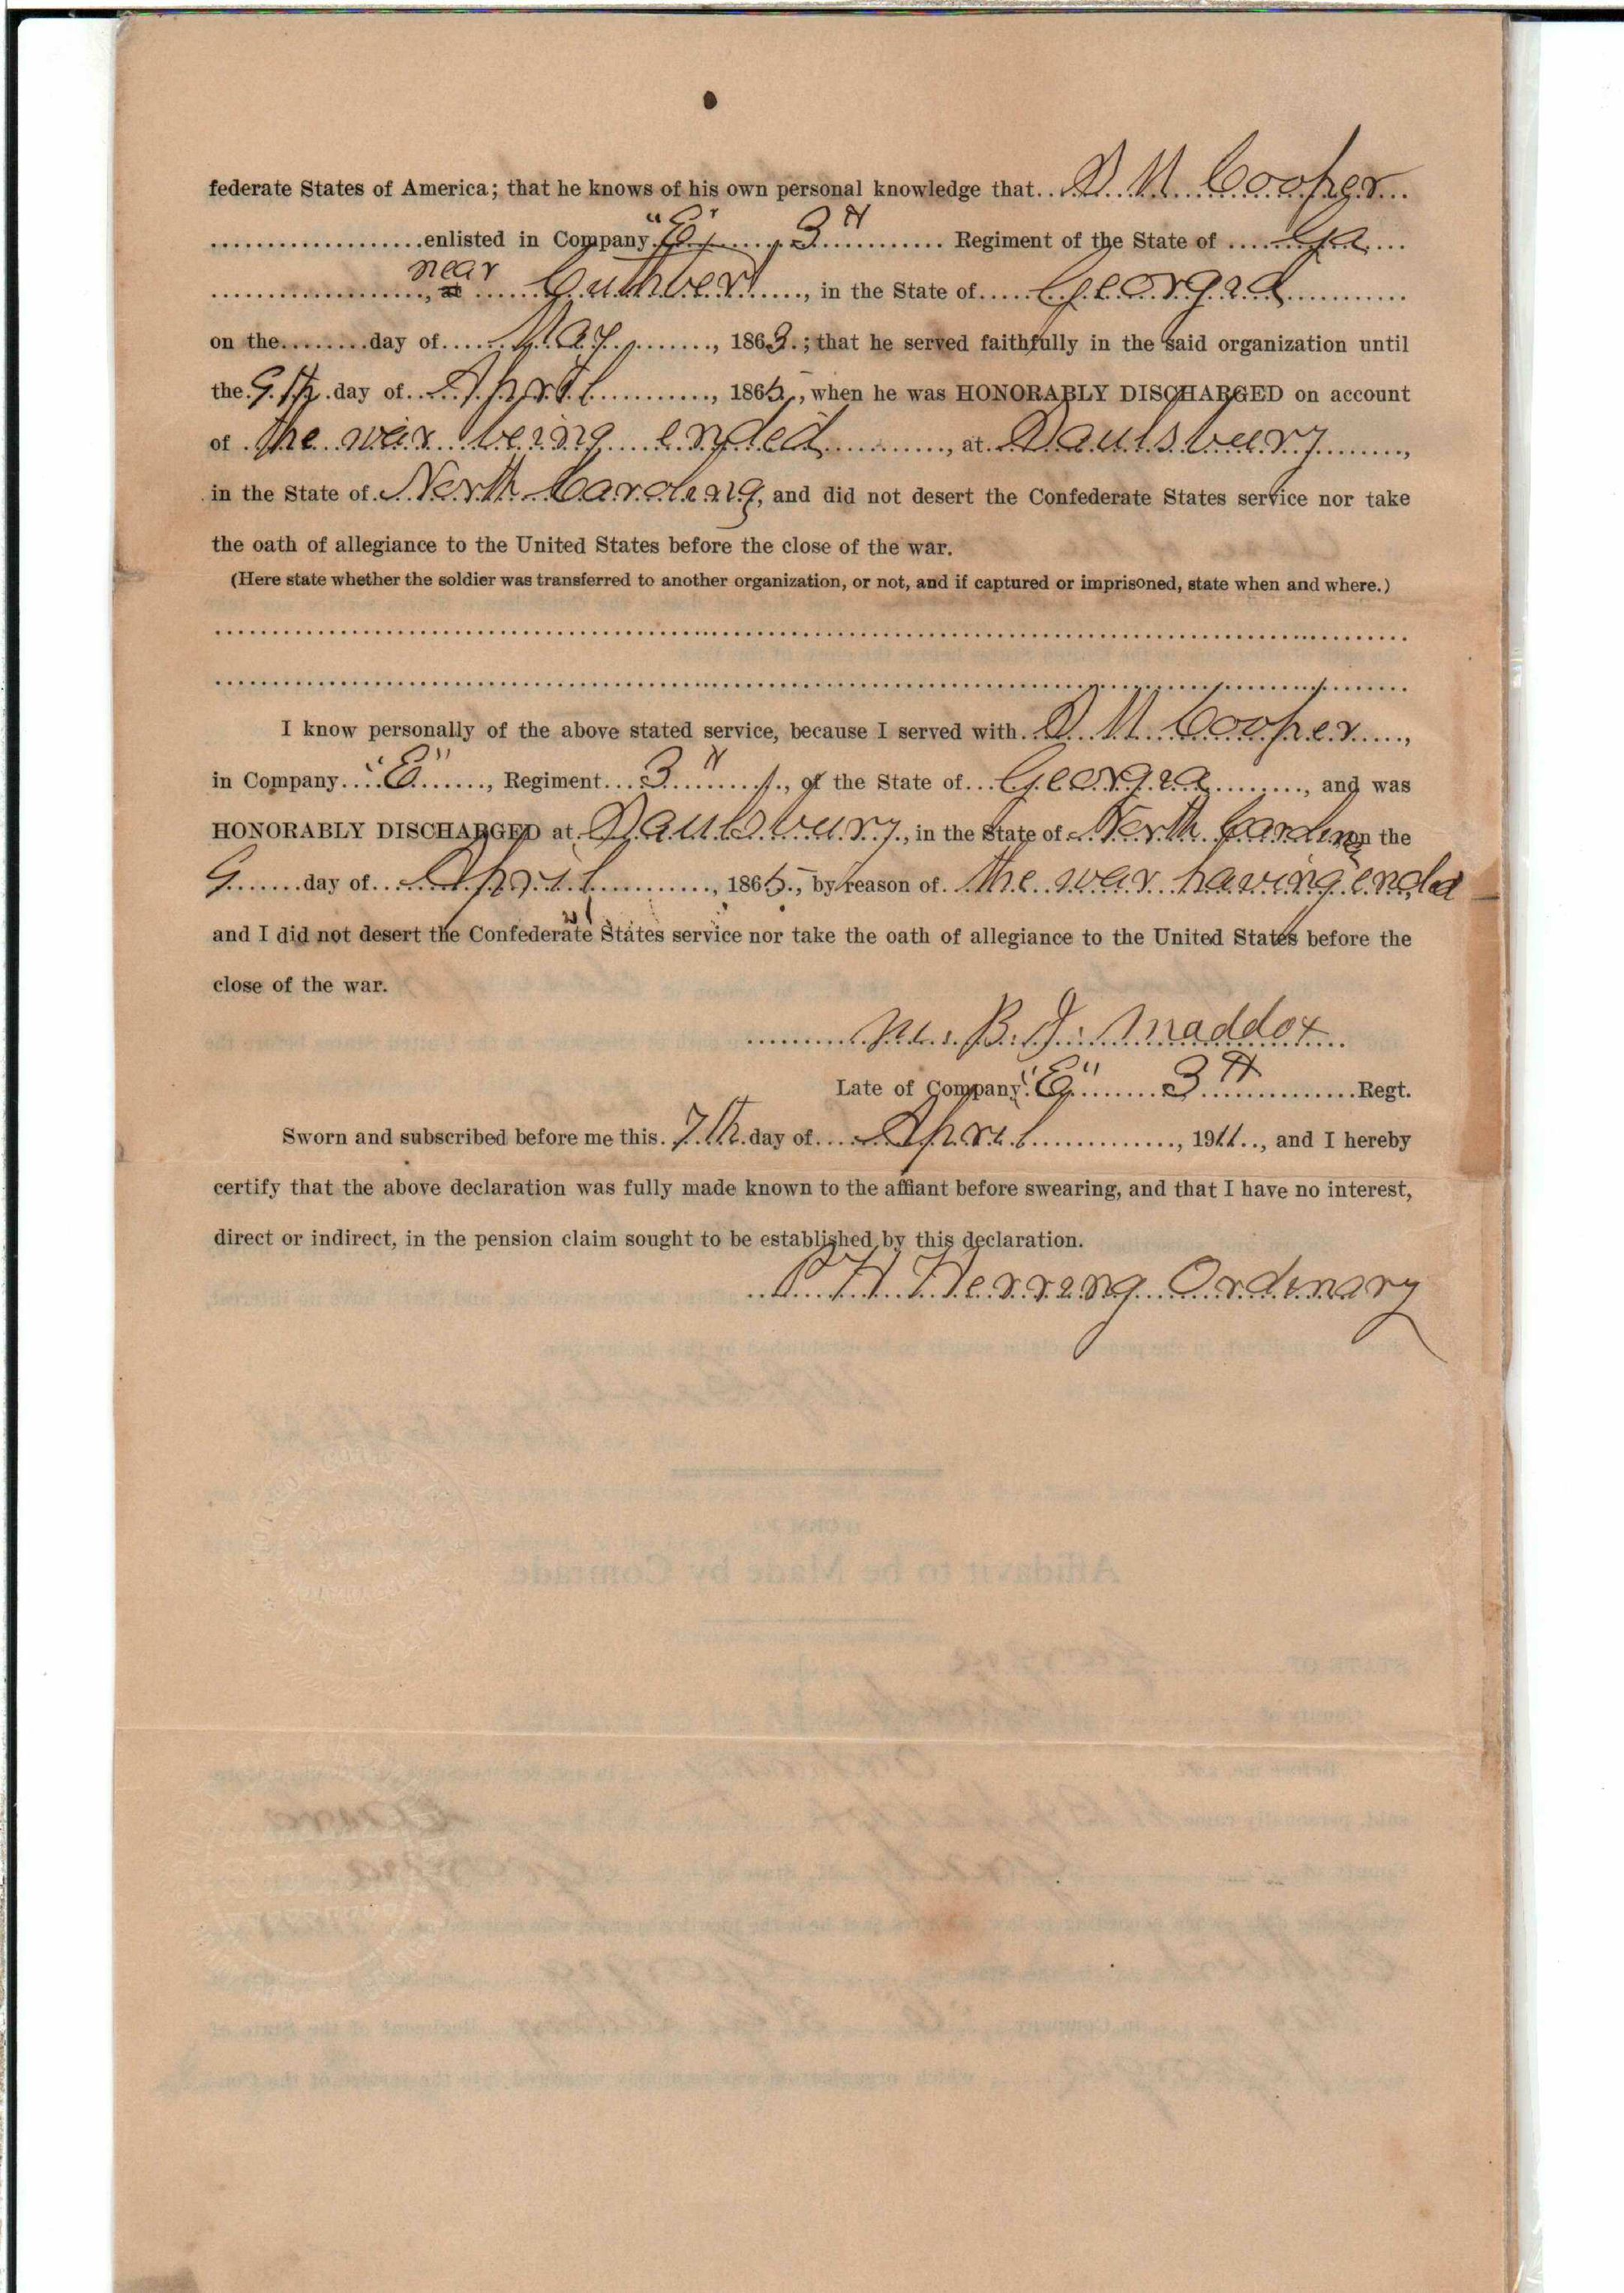 federate States of America; that he knows of his own personal knowledge that D. M. Cooper
enlisted in Company "E", 3d Regiment of the State of Ga
near
, at Cuthbert, in the State of Georgia
on the day of May, 1863; that he served faithfully in the said organization until
the 9th day of April, 1865, when he was HONORABLY DISCHARGED on account
of the war being ended, at Saulsbury,
in the State of North Carolina, and did not desert the Confederate States service nor take
the oath of allegiance to the United States before the close of the war.
(Here state whether the soldier was transferred to another organization, or not, and if captured or imprisoned, state when and where.)
I know personally of the above stated service, because I served with D. M. Cooper,
in Company "E", Regiment 3d, of the State of Georgia, and was
HONORABLY DISCHARGED at Saulsbury, in the State of North Carolina on the
9 day of April, 1865, by reason of the war having ended
and I did not desert the Confederate States service nor take the oath of allegiance to the United States before the
close of the war.
M. B. J. Maddox
Late of Company "E" 3d Regt.
Sworn and subscribed before me this 7th day of April, 1911, and I hereby
certify that the above declaration was fully made known to the affiant before swearing, and that I have no interest,
direct or indirect, in the pension claim sought to be established by this declaration.
P. H. Herring Ordinary